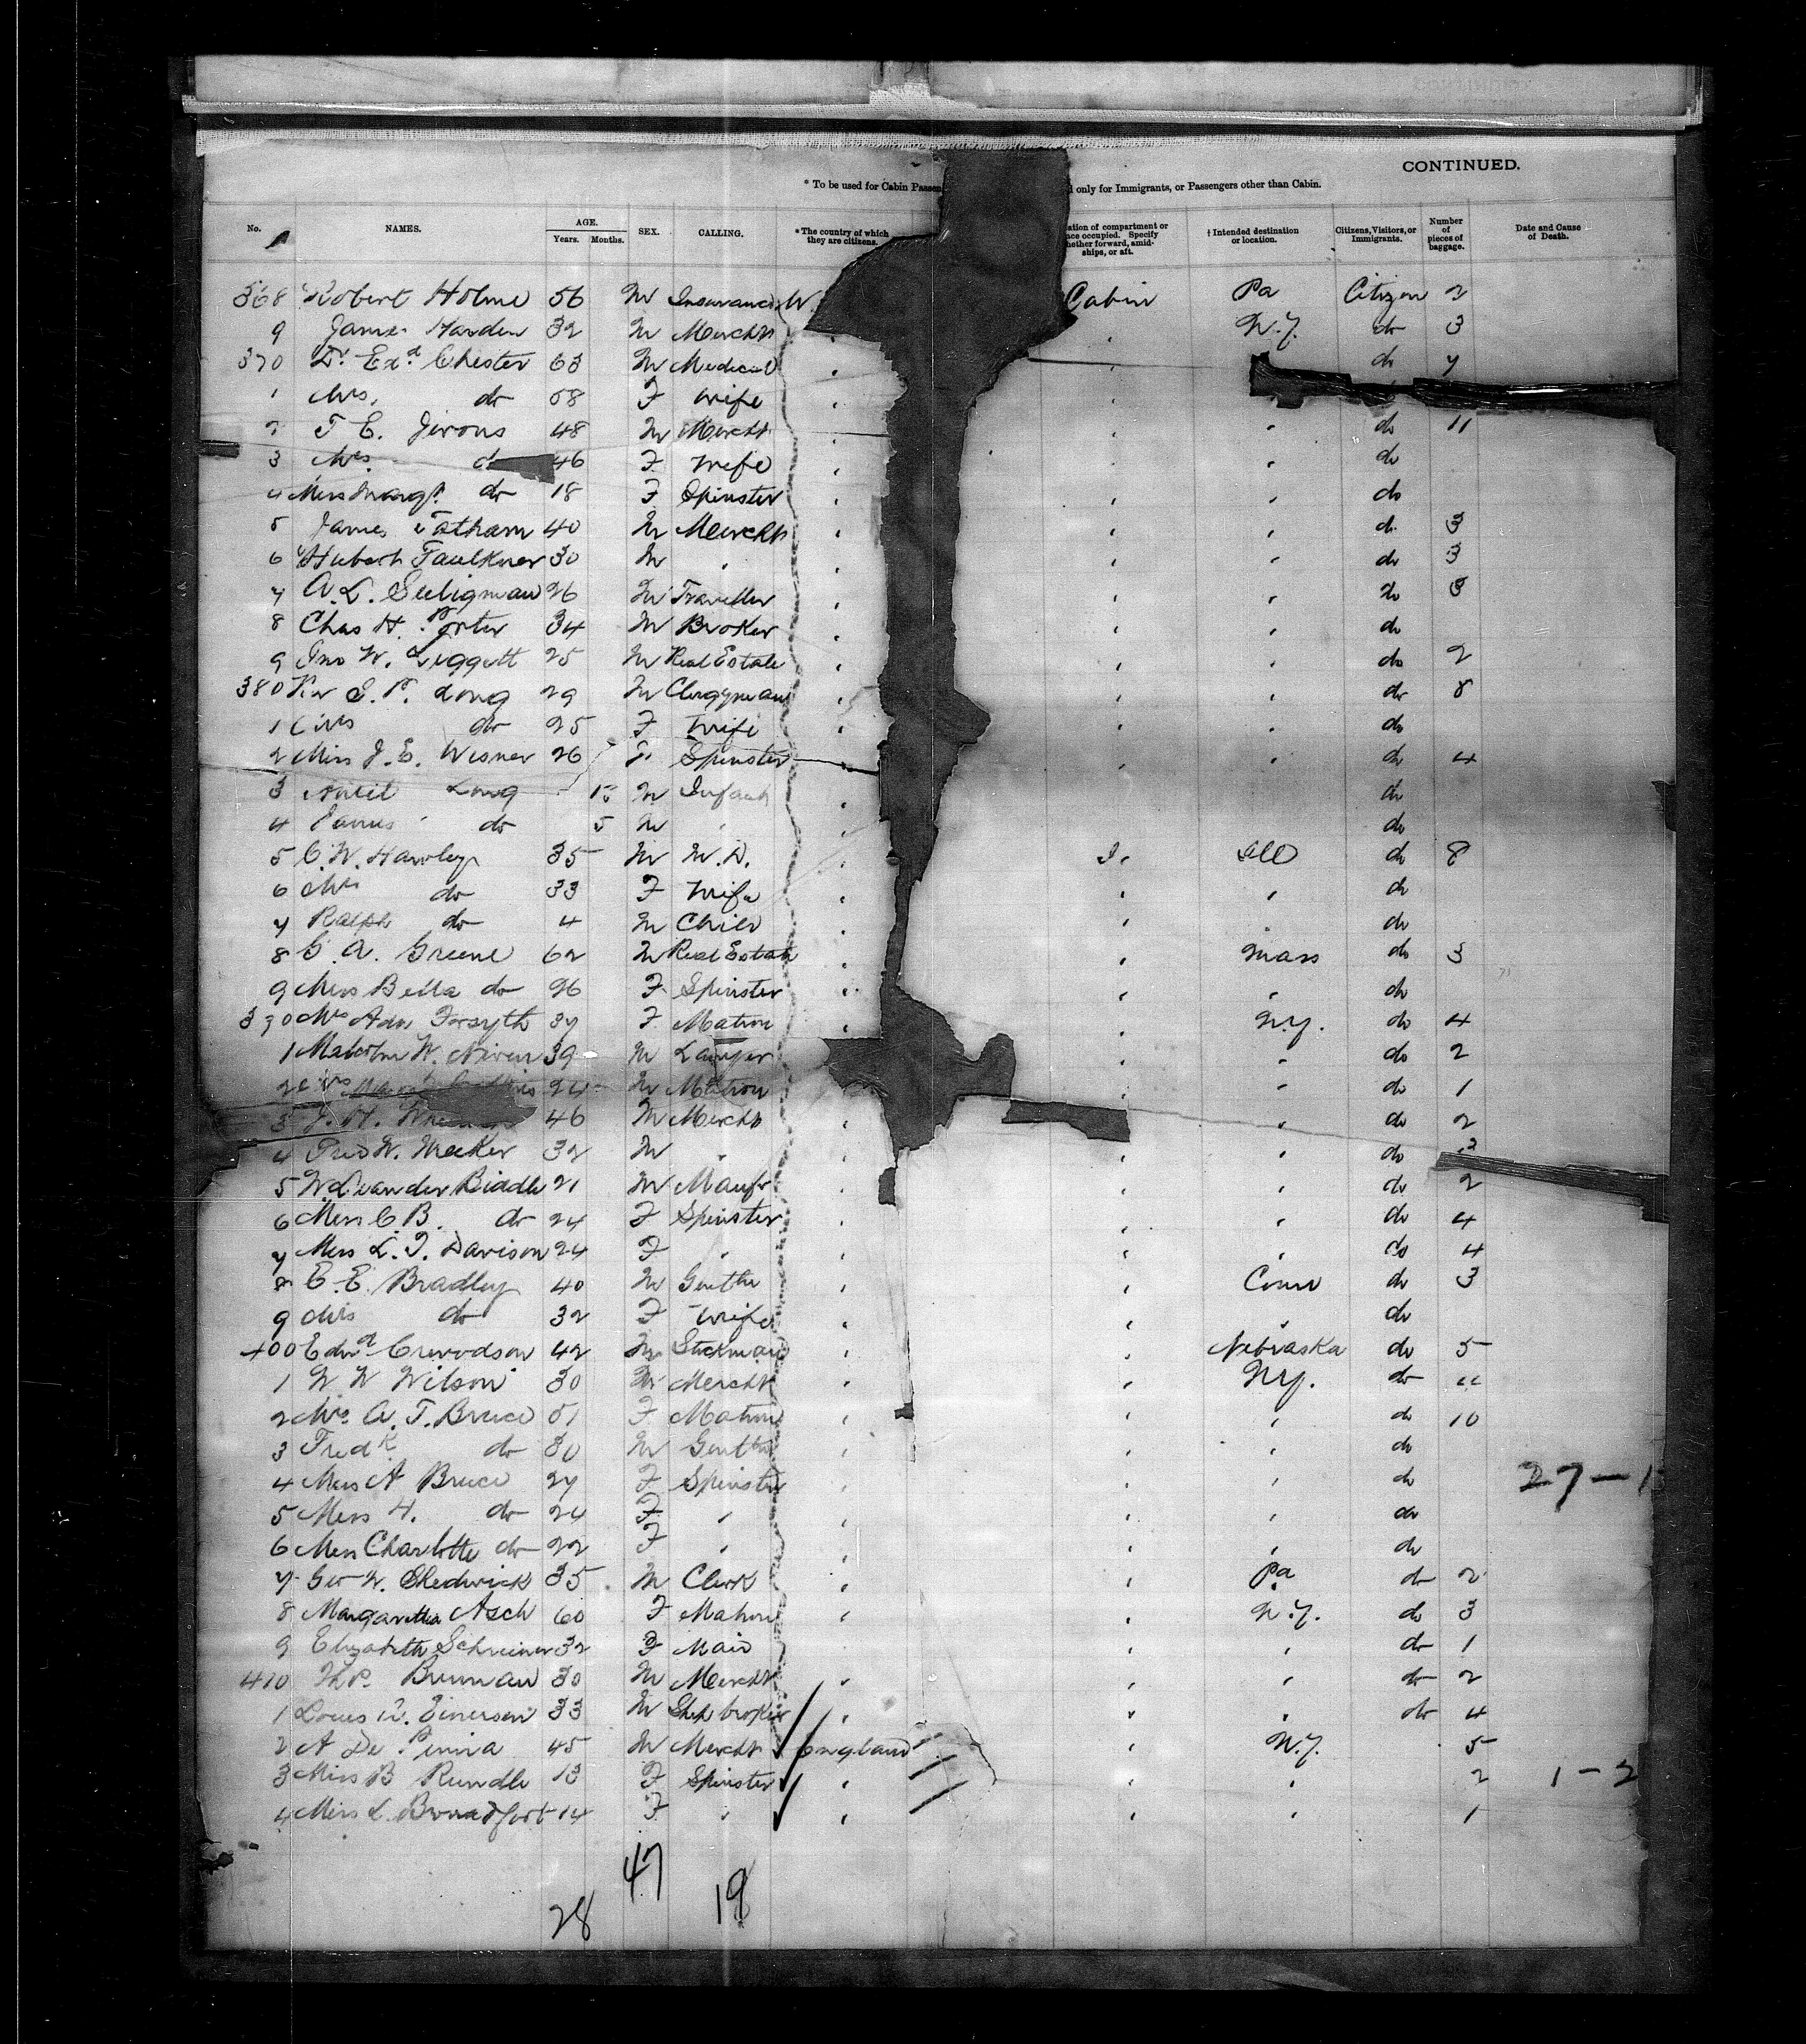 CONTINUED.
* To be used for Cabin Passen d only for Immigrants, or Passengers other than Cabin.
No. NAMES. AGE. Years. Months. SEX. CALLING. * The country of which they are citizens. ation of compartment or ace occupied. Specify hether forward, amid-ships, or aft. † Intended destination or location. Citizens, Visitors, or Immigrants. Number of pieces of baggage. Date and Cause of Death.
368 Robert Holme 56 M Insurance W. Cabin Pa Citizen 2
9 James Harden 32 M Mercht " " N.Y. do 3
370 Dr Exd Chester 63 M Medical " " do 7
1 Mrs. do 58 F Wife " "
2 T E. Jevons 48 M Mercht " " " do 11
3 Mrs. do 46 F Wife " " " do
4 Miss Margt. do 18 F Spinster " " " do
5 James Tatham 40 M Mercht " " " do 3
6 Hubert Faulkner 30 M " " " " do 3
7 A. L. Seeligman 26 M Traveller " " " do 3
8 Chas H. Porter 34 M Broker " " " do
9 Jno W. Leggett 25 M Real Estate " " " do 2
380 Rev S. P. Long 29 M Clergyman " " " do 8
1 Mrs do 25 F Wife " " " do
2 Miss J. E. Wisner 26 F Spinster " " do 4
3 Long M Infant " do
4 James do 5 M " " do
5 C. W. Hawley 35 M M.D. " Ill do 8
6 Mrs do 33 F Wife " " " do
7 Ralph do 4 M Child " " do
8 C. A. Greene 62 M Real Estate " " Mass do 3
9 Miss Bella do 26 F Spinster " " " do
390 Mrs Ada Forsyth 37 F Matron " " N.Y. do 4
1 Malcolm W. Niven 39 M Lawyer " " do 2
2 Mrs 24 M Matron " " do 1
3 J. H. 46 M Mercht " " do 2
4 Fred W. Meeker 32 M " " " " do 2
5 W. Leander Biddle 21 M Manfr " " " do 2
6 Miss C. B. do 24 F Spinster " " " do 4
7 Miss L. T. Davison 24 F " " " " do 4
8 E. E. Bradley 40 M Gentln " " Conn do 3
9 Mrs do 32 F Wife " " " do
400 Edwd Crewdson 42 M Stockman " " Nebraska do 5
1 W W Wilson 30 M Mercht " " N.Y. do
2 Mrs. A. T. Bruce 51 F Matron " " " do 10
3 Fredk do 30 M Gentln " " " do
4 Miss A Bruce 27 F Spinster " " " do 27-1
5 Miss H. do 24 F " " " " do
6 Miss Charlotte do 22 F " " " " do
7 Geo W. Chedwick 35 M Clerk " " Pa do 2
8 Margaretha Asch 60 F Matron " " N.Y. do 3
9 Elizabeth Schreiner 32 F Maid " " do 1
410 Brennan 30 M Mercht " " " do 2
1 Louis A. Einerson 33 M Ship broker " " " do 4
2 A De Pinna 45 M Mercht England " N.Y. 5
3 Miss B Rundle 13 F Spinster " " " 2 1-2
4 Miss L. Broadfort 14 F " " " " 1
47
28 19